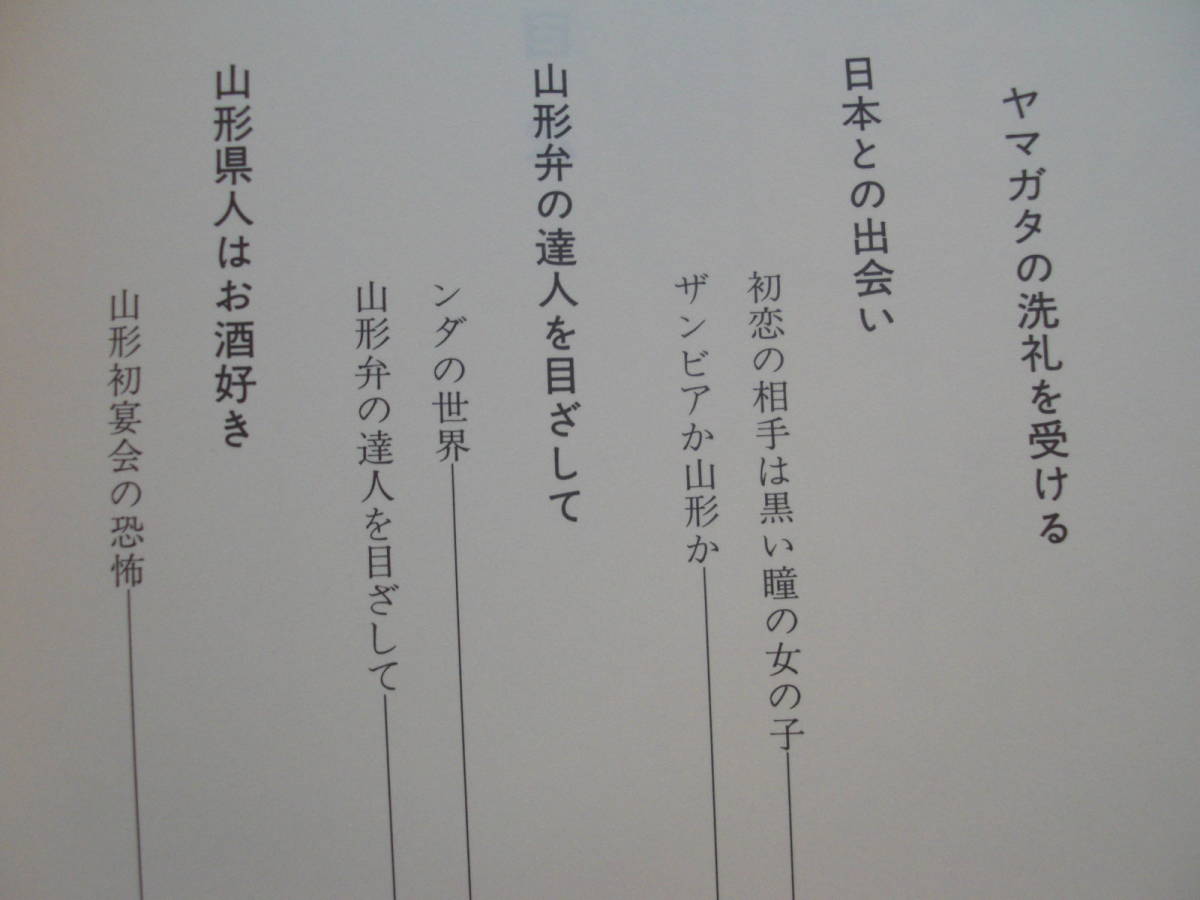 ヤマガタの洗礼を受ける
日本との出会い
初恋の相手は黒い瞳の女の子
ザンビアか山形か
山形弁の達人を目ざして
ンダの世界
山形弁の達人を目ざして
山形県人はお酒好き
山形初宴会の恐怖